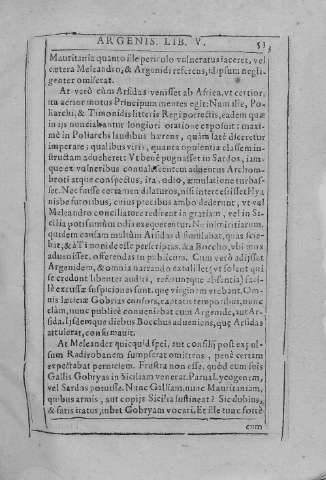 ARGENIS. LIB. V.
Mauritaniæ quanto ille periculo vulneratus iaceret, vel
cætera Meleandro, & Argenidi referens, id ipsum negli-
genter omiserat.
At verò cùm Arsidas venisset ab Africa, vt certior,
ita acrior motus Principum mentes egit: Nam ille, Po-
liarchi, & Timonidis litteris Regi porrectis, eadem quæ
in ijs nunciabantur longiori oratione exposuit: maxi-
mè in Poliarchi laudibus hærens, quàm latè discretur
imperare; qualibus viris, quanta opulentia classem in-
structam adueheret: Vt benè pugnasset in Sardos, iam-
que ex vulneribus conualescentem aduentus Archom-
broti atque conspectus, ira, odio, æmulatione turbas-
set. Nec fuisse certamen dilaturos, nisi intercessisset Hya
nisbe
cuius precibus ambo dederunt, vt vel
Meleandro conciliatore redirent in gratiam, vel in Si-
cilia potissimùm odia exequerentur.
inimicitiarum,
quidem causam multùm Arsidas dissimulabat, quas scie-
bat, & à Timonide esse perscriptas, & à Boccho, vbi mox
aduenisset, offerendas in publicum. Cum verò adijsset
Argenidem, & omnia narrando extulisset (vt solent qui
se credunt libenter audiri,
faci-
lè excussæ suspiciones sunt, quæ virginem
Om-
nis lætitiæ Gobrias consors, captatis temporibus, nunc
clàm, nunc publicè conueniebat cum Argenide, aut Ar-
sida. Iisdemque diebus Bocchus adueniens, quæ Arsidas
attulerat, confirmauit.
At Meleander quicquid spei, aut consilij post expul-
sum Radirobanem sumpserat omittens, penè certam
expectabat perniciem. Frustra non esse, quòd cum suis
Gallis Gobryas in Siciliam venerat. Parua Lycogenem,
vel Sardos potuisse. Nunc Galliam, nunc Mauritaniam,
quibus armis, aut copijs Sicilia sustineat? Sic dubius,
& satis iratus, iubet Gobryam vocari. Et ille tunc fortè
cum